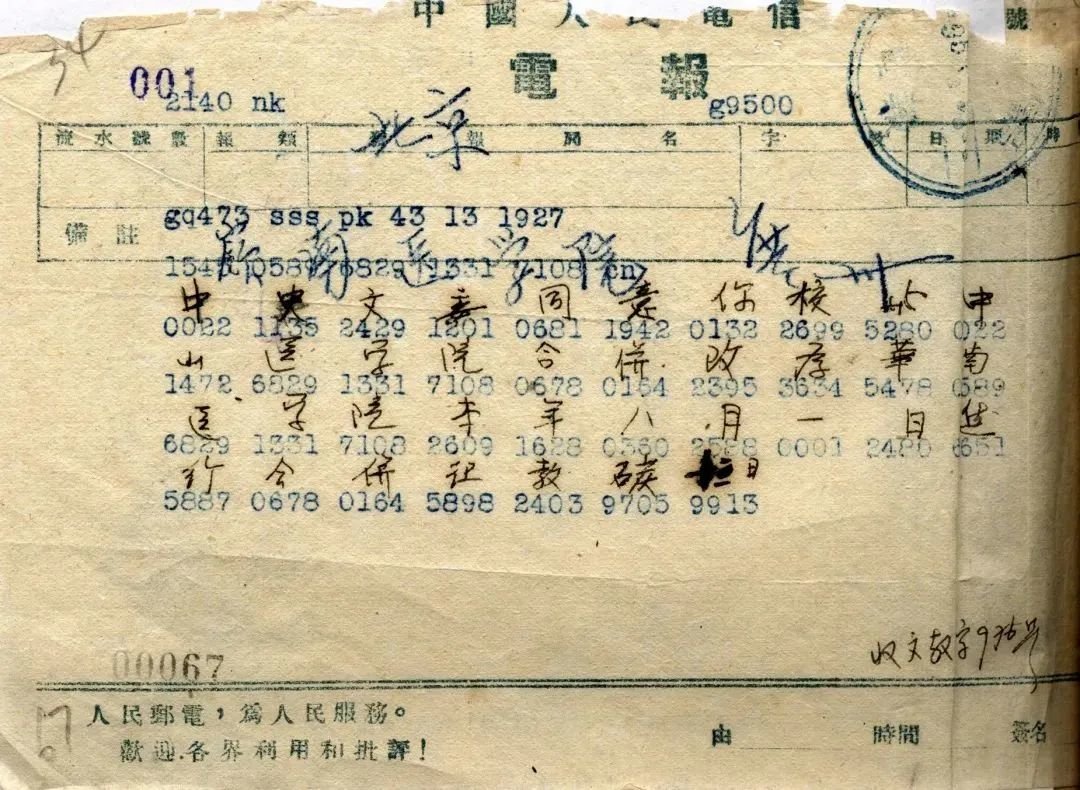 中國人民電信 號
電報
001
2140 nk 北京 g9500
流水號數 報類 報局名 字 日期 時
gq473 sss pk 43 13 1927
備註
南医学院
6829 1331 7108 cn
中央文委同意你校 中
0022 1135 2429 1201 0681 1942 0132 2699 5280 022
山医学院合併改 華南
1472 6829 1331 7108 0678 0164 2395 3634 5478 0589
医学院本年八月一日进
6829 1331 7108 2609 1628 0360 2588 0001 2480 6651
行合併 教 日
5887 0678 0164 5898 2403 9705 9913
收文教字 号
00067
人民郵電,爲人民服務。
歡迎各界利用和批評!
由 時間 簽名